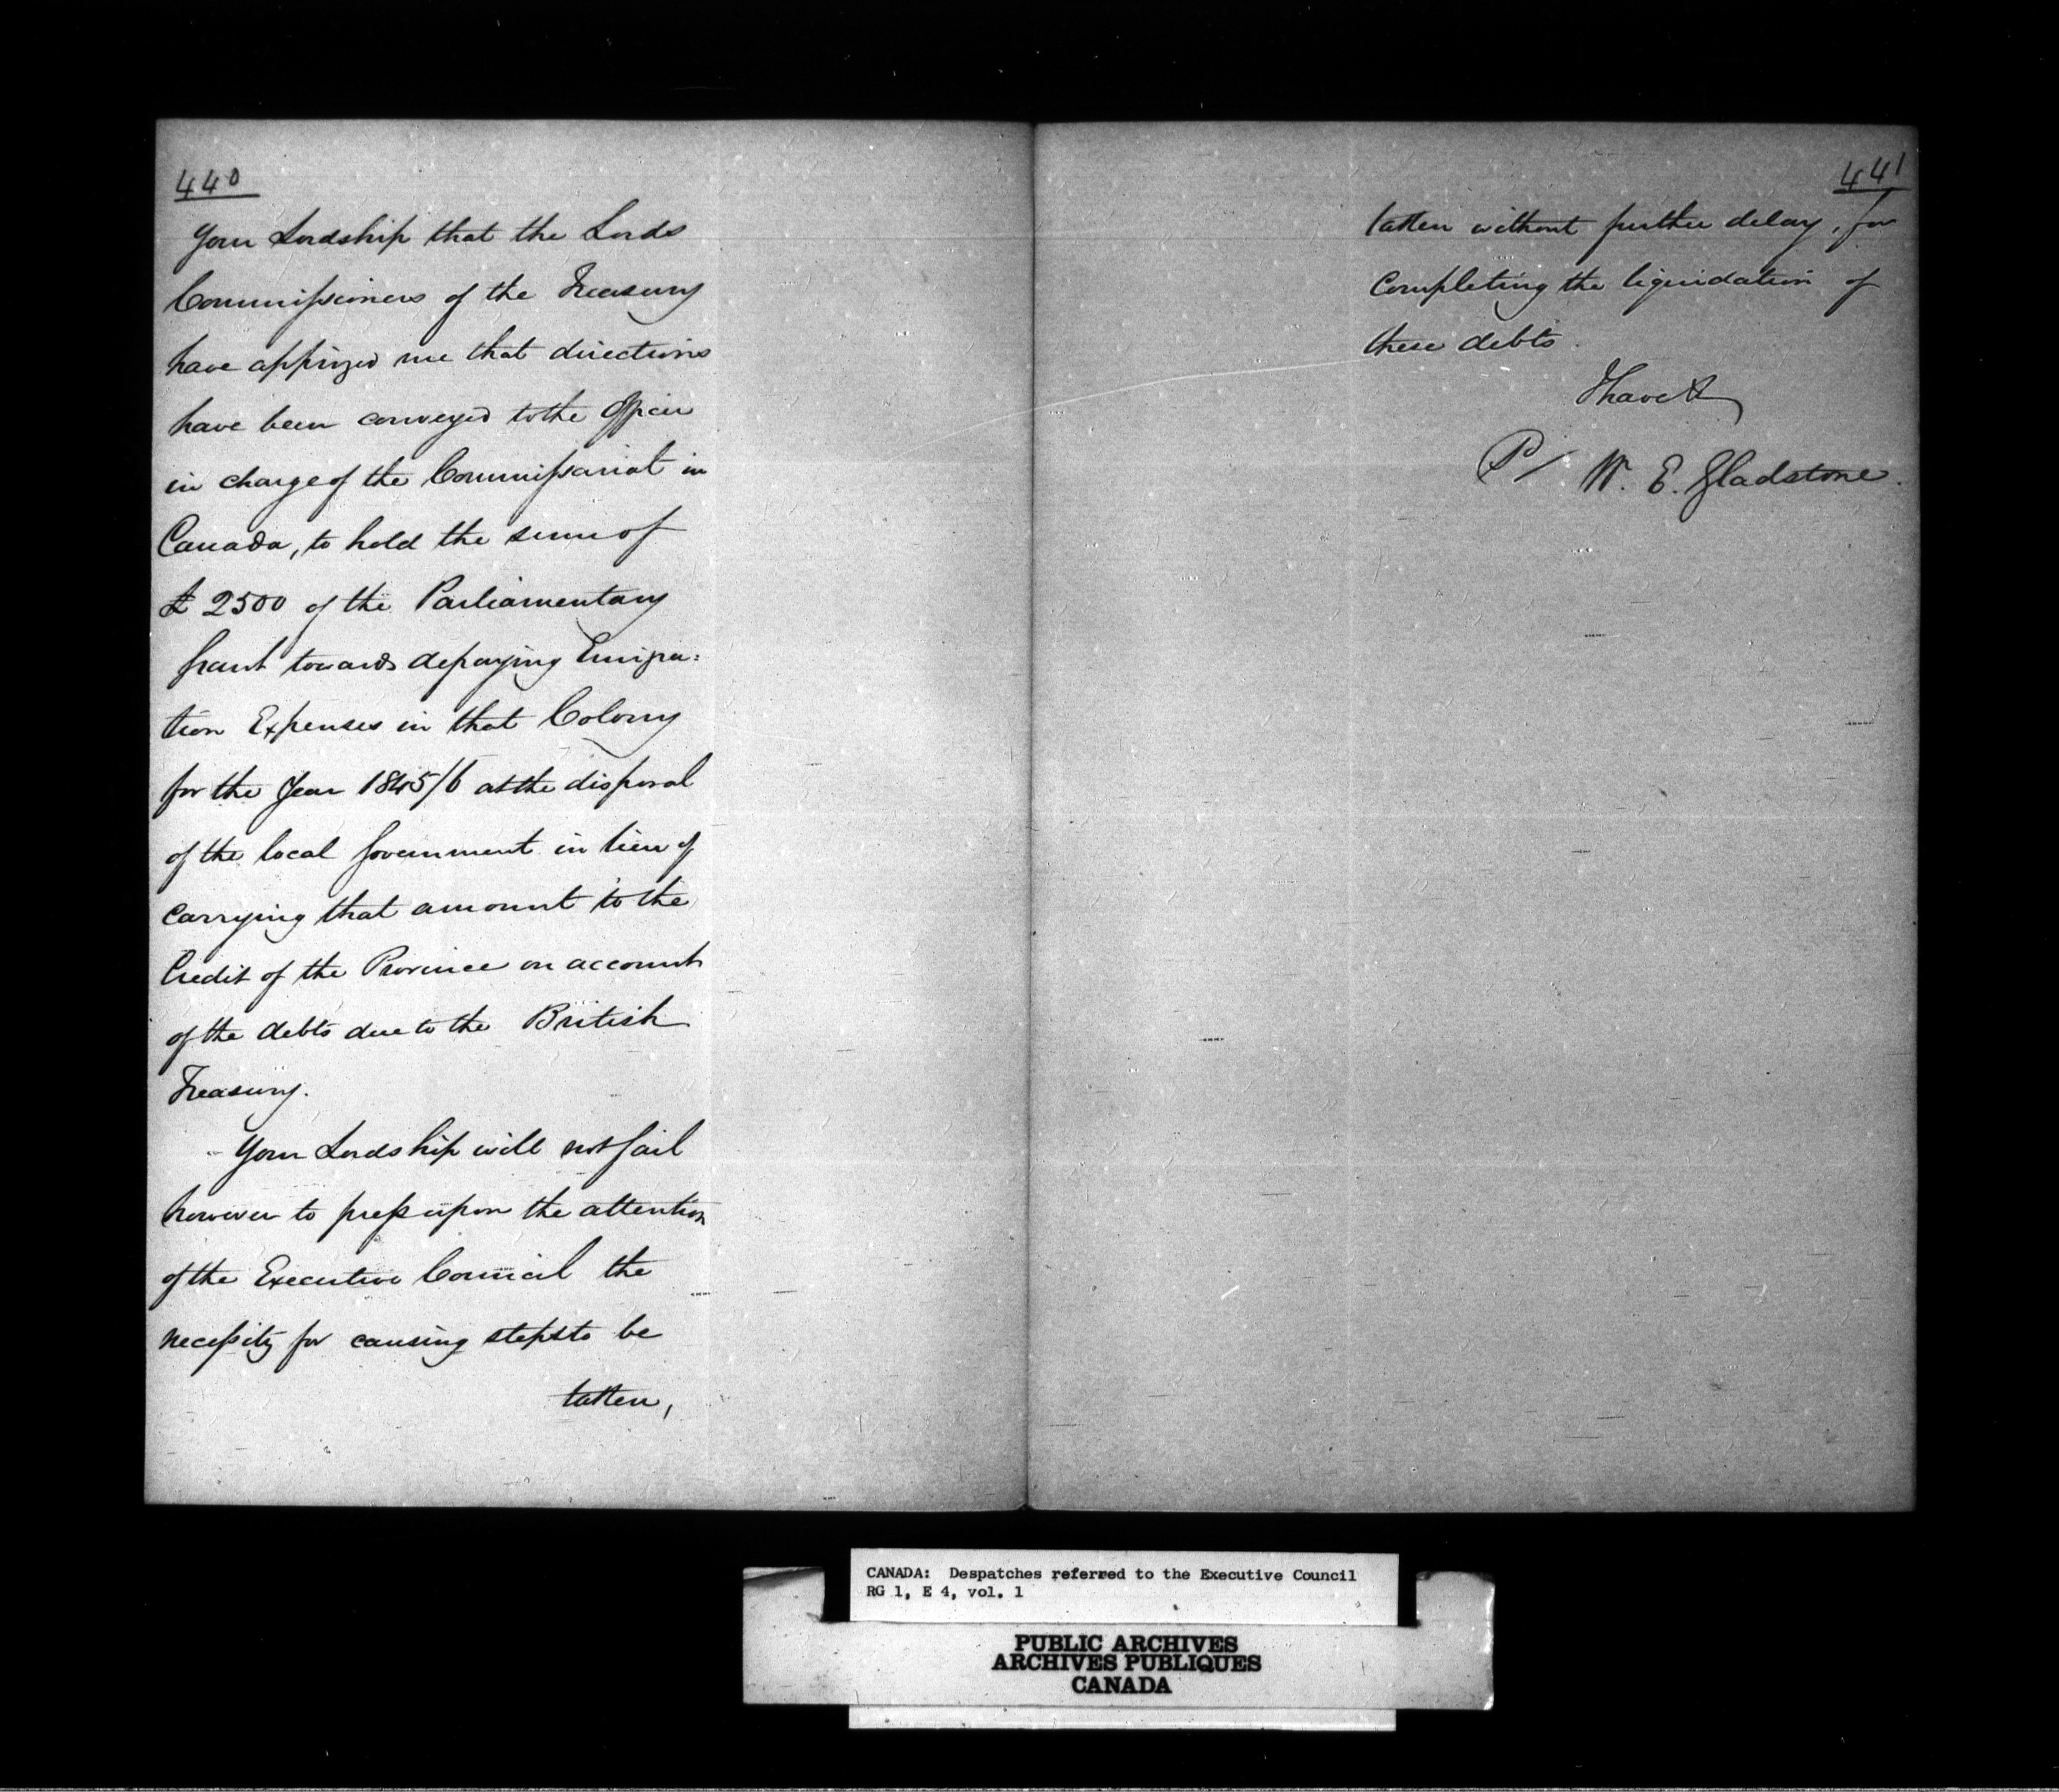 440
Your Lordship that the Lords
Commissioners of the Treasury
have apprized me that directions
have been conveyed to the Officer
in charge of the Commissariat in
Canada, to hold the sum of
£2500 of the Parliamentary
Grant towards defraying Emigra:
tion Expenses in that Colony
for the Year 1845/6 at the disposal
of the local Government in lieu of
carrying that amount to the
Credit of the Province on account
of the debts due to the British
Treasury.
Your Lordship will not fail
however to press upon the attention
of the Executive Council the
necessity for causing steps to be
taken,
441
taken without further delay, for
completing the liquidation of
these debts.
I have &
W. E. Gladstone.
CANADA: Despatches referred to the Executive Council
RG 1, E 4, vol. 1
PUBLIC ARCHIVES
ARCHIVES PUBLIQUES
CANADA